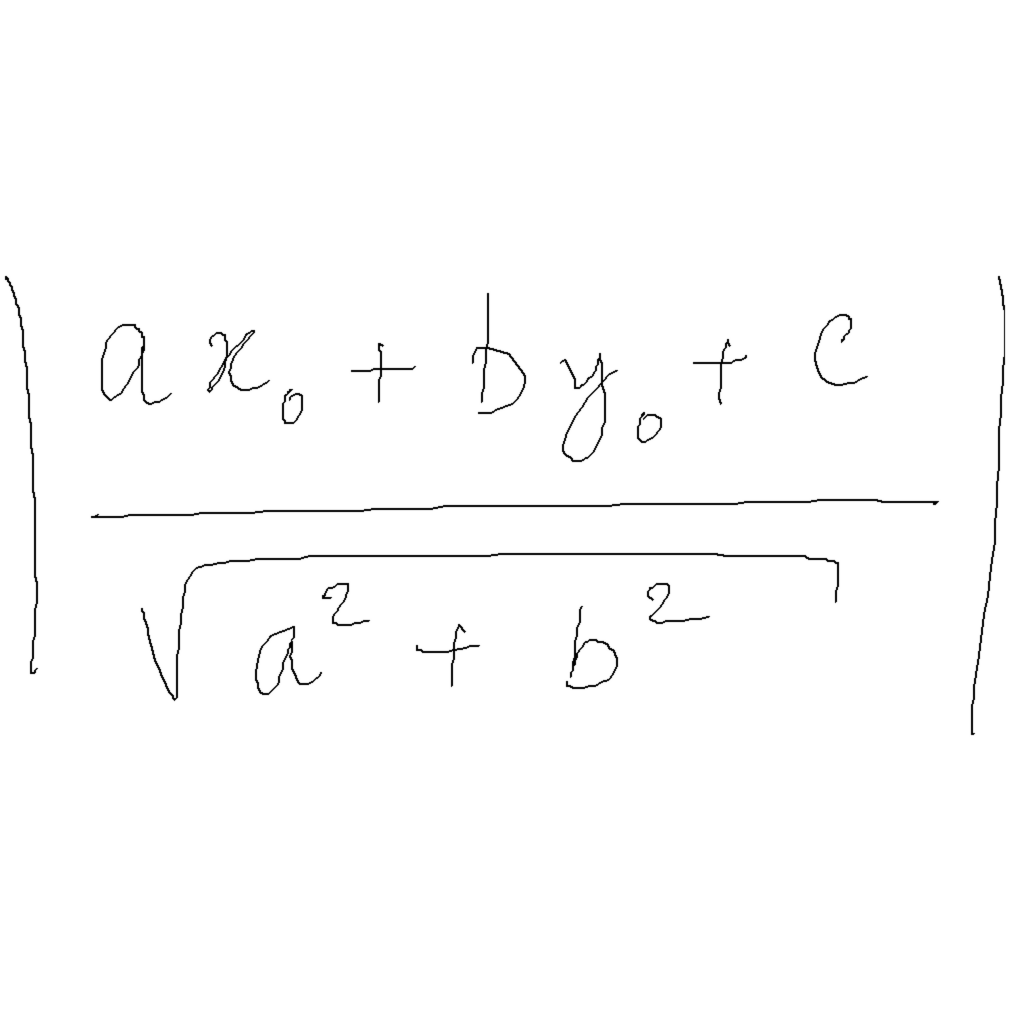 \left| \frac{ax_0 + by_0 + c}{\sqrt{a^2 + b^2}} \right|